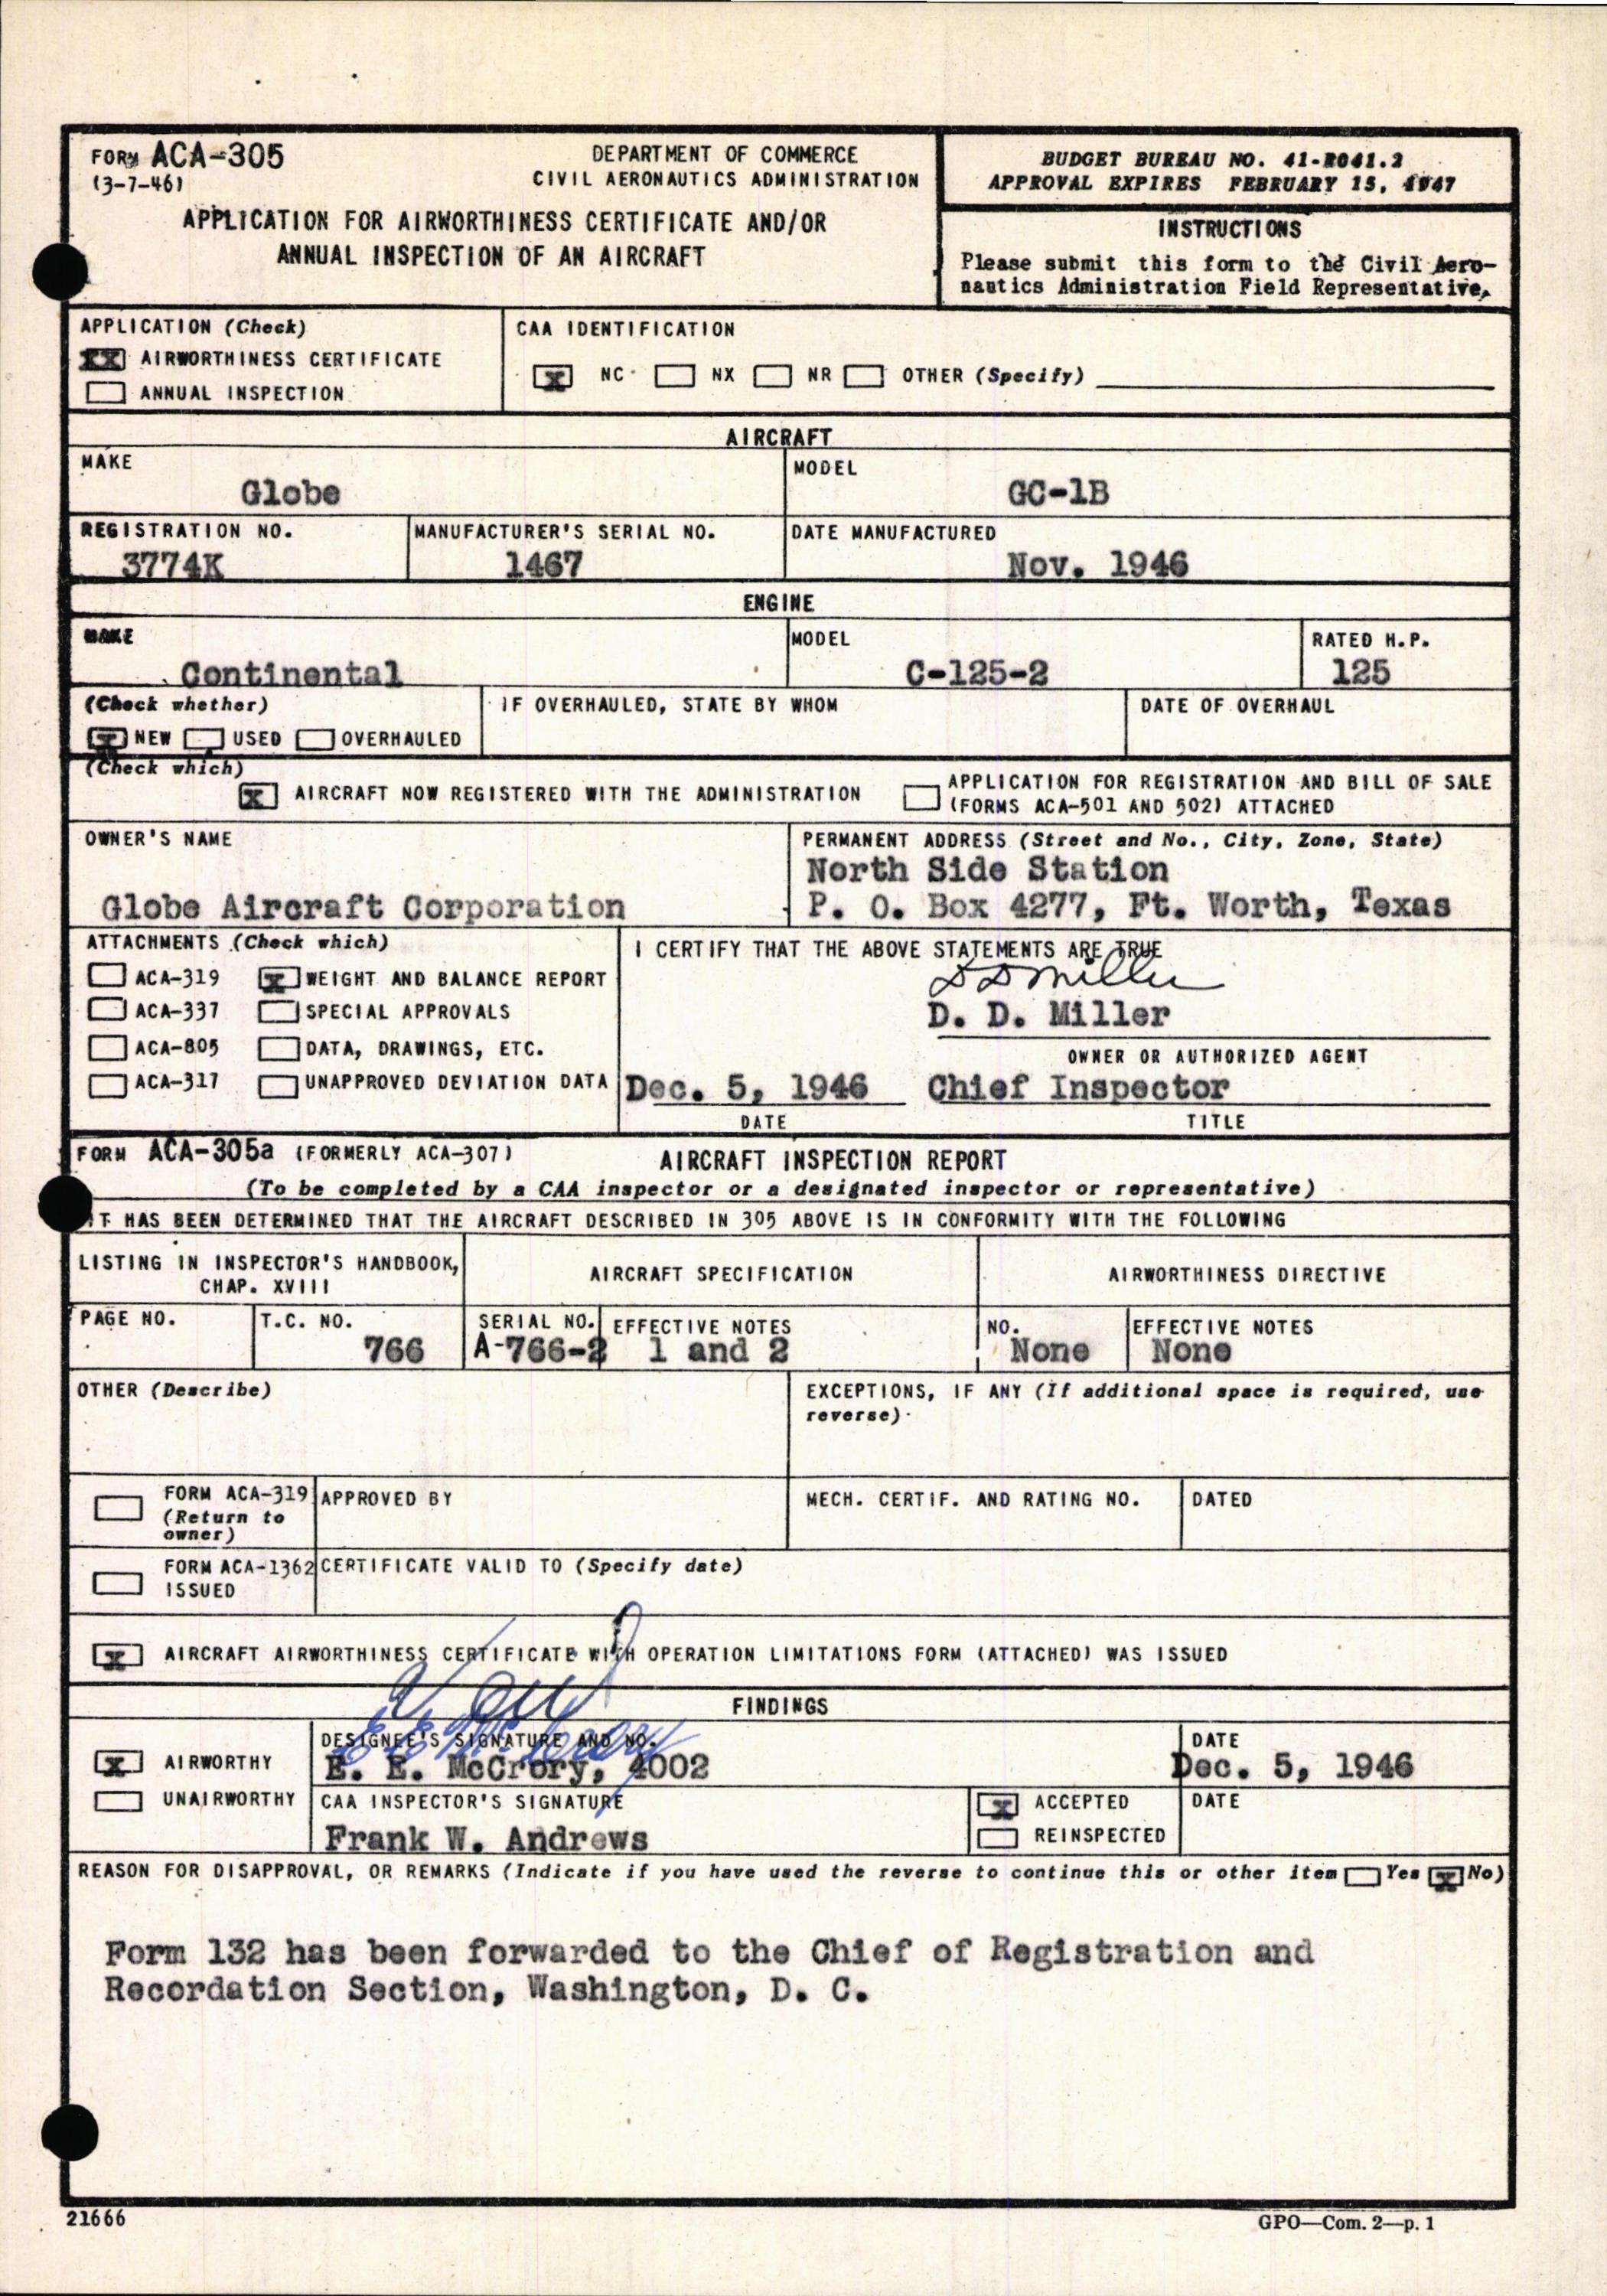 FORM ACA-305
(3-7-46)
DEPARTMENT OF COMMERCE
CIVIL AERONAUTICS ADMINISTRATION
APPLICATION FOR AIRWORTHINESS CERTIFICATE AND/OR
ANNUAL INSPECTION OF AN AIRCRAFT
BUDGET BUREAU NO. 41-R041.2
APPROVAL EXPIRES FEBRUARY 15, 1947
INSTRUCTIONS
Please submit this form to the Civil Aero-
nautics Administration Field Representative.
APPLICATION (Check)
XX AIRWORTHINESS CERTIFICATE
ANNUAL INSPECTION
CAA IDENTIFICATION
X NC NX NR OTHER (Specify)
AIRCRAFT
MAKE
Globe
MODEL
GC-1B
REGISTRATION NO.
3774K
MANUFACTURER'S SERIAL NO.
1467
DATE MANUFACTURED
Nov. 1946
ENGINE
MAKE
Continental
MODEL
C-125-2
RATED H.P.
125
(Check whether)
X NEW USED OVERHAULED
IF OVERHAULED, STATE BY WHOM
DATE OF OVERHAUL
(Check which)
X AIRCRAFT NOW REGISTERED WITH THE ADMINISTRATION
APPLICATION FOR REGISTRATION AND BILL OF SALE
(FORMS ACA-501 AND 502) ATTACHED
OWNER'S NAME
Globe Aircraft Corporation
PERMANENT ADDRESS (Street and No., City, Zone, State)
North Side Station
P. O. Box 4277, Ft. Worth, Texas
ATTACHMENTS (Check which)
ACA-319 X WEIGHT AND BALANCE REPORT
ACA-337 SPECIAL APPROVALS
ACA-805 DATA, DRAWINGS, ETC.
ACA-317 UNAPPROVED DEVIATION DATA
I CERTIFY THAT THE ABOVE STATEMENTS ARE TRUE
D D Miller
D. D. Miller
OWNER OR AUTHORIZED AGENT
Dec. 5, 1946 Chief Inspector
DATE TITLE
FORM ACA-305a (FORMERLY ACA-307)
AIRCRAFT INSPECTION REPORT
(To be completed by a CAA inspector or a designated inspector or representative)
IT HAS BEEN DETERMINED THAT THE AIRCRAFT DESCRIBED IN 305 ABOVE IS IN CONFORMITY WITH THE FOLLOWING
LISTING IN INSPECTOR'S HANDBOOK,
CHAP. XVIII
AIRCRAFT SPECIFICATION
AIRWORTHINESS DIRECTIVE
PAGE NO.
T.C. NO.
766
SERIAL NO.
A-766-2
EFFECTIVE NOTES
1 and 2
NO.
None
EFFECTIVE NOTES
None
OTHER (Describe)
EXCEPTIONS, IF ANY (If additional space is required, use
reverse)
FORM ACA-319
(Return to
owner)
APPROVED BY
MECH. CERTIF. AND RATING NO.
DATED
FORM ACA-1362
ISSUED
CERTIFICATE VALID TO (Specify date)
X AIRCRAFT AIRWORTHINESS CERTIFICATE WITH OPERATION LIMITATIONS FORM (ATTACHED) WAS ISSUED
FINDINGS
X AIRWORTHY
UNAIRWORTHY
DESIGNEE'S SIGNATURE AND NO.
E E McCrory
E. E. McCrory, 4002
DATE
Dec. 5, 1946
CAA INSPECTOR'S SIGNATURE
Frank W. Andrews
X ACCEPTED
REINSPECTED
DATE
REASON FOR DISAPPROVAL, OR REMARKS (Indicate if you have used the reverse to continue this or other item Yes X No)
Form 132 has been forwarded to the Chief of Registration and
Recordation Section, Washington, D. C.
21666
GPO—Com. 2—p. 1